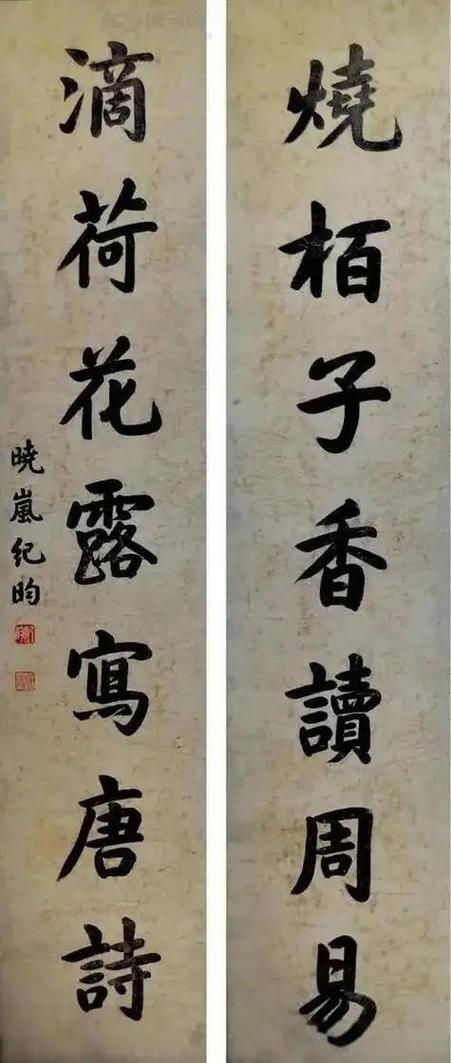 燒栢子香讀周易
滴荷花露寫唐詩
曉嵐紀昀